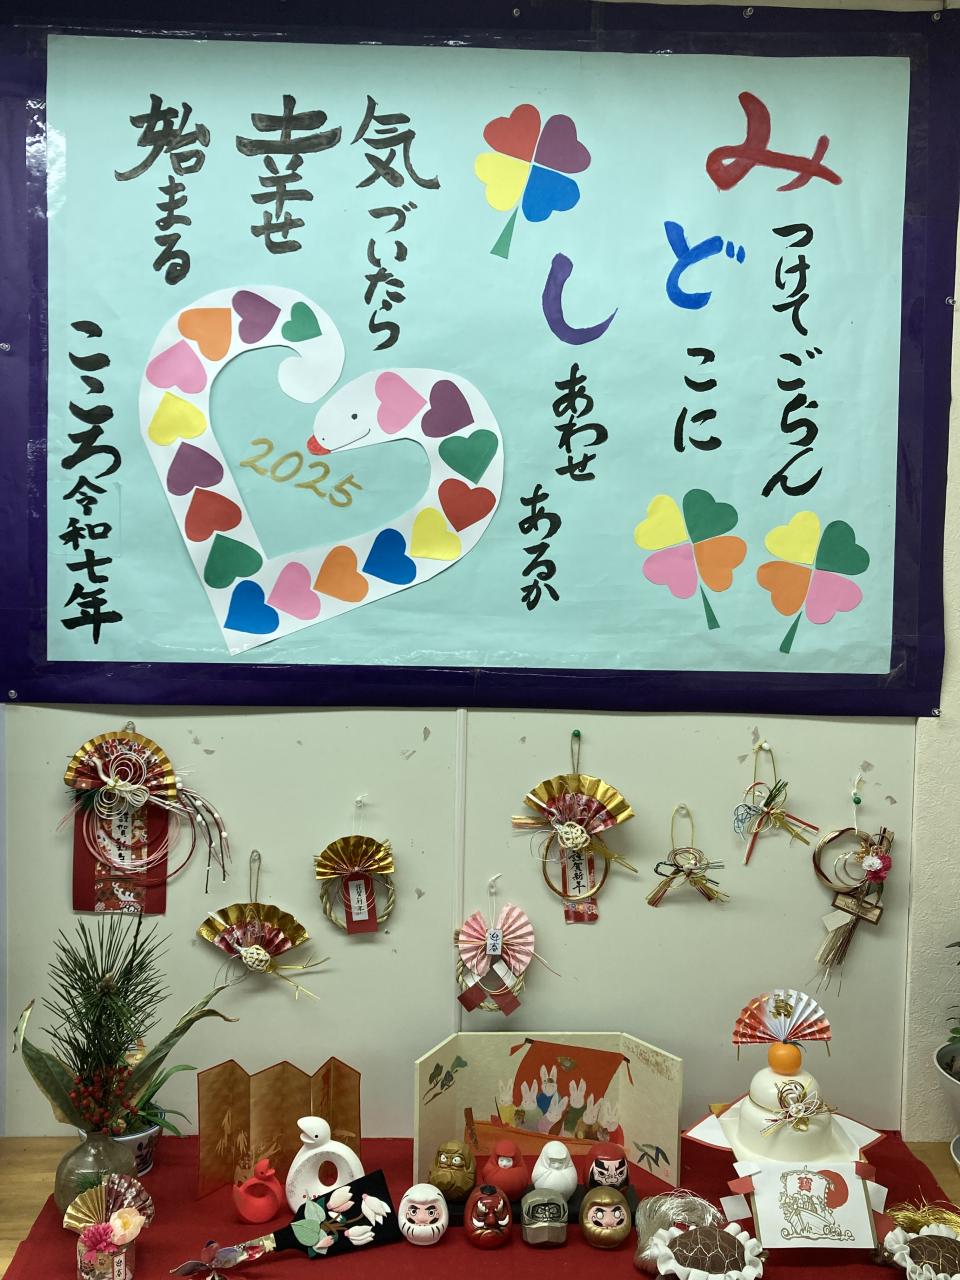 みつけてごらん
どこに
しあわせ
あるか
気づいたら
幸せ
始まる
こころ令和七年
2025
謹賀新年
謹賀新年
謹賀新年
迎春
迎春
寳